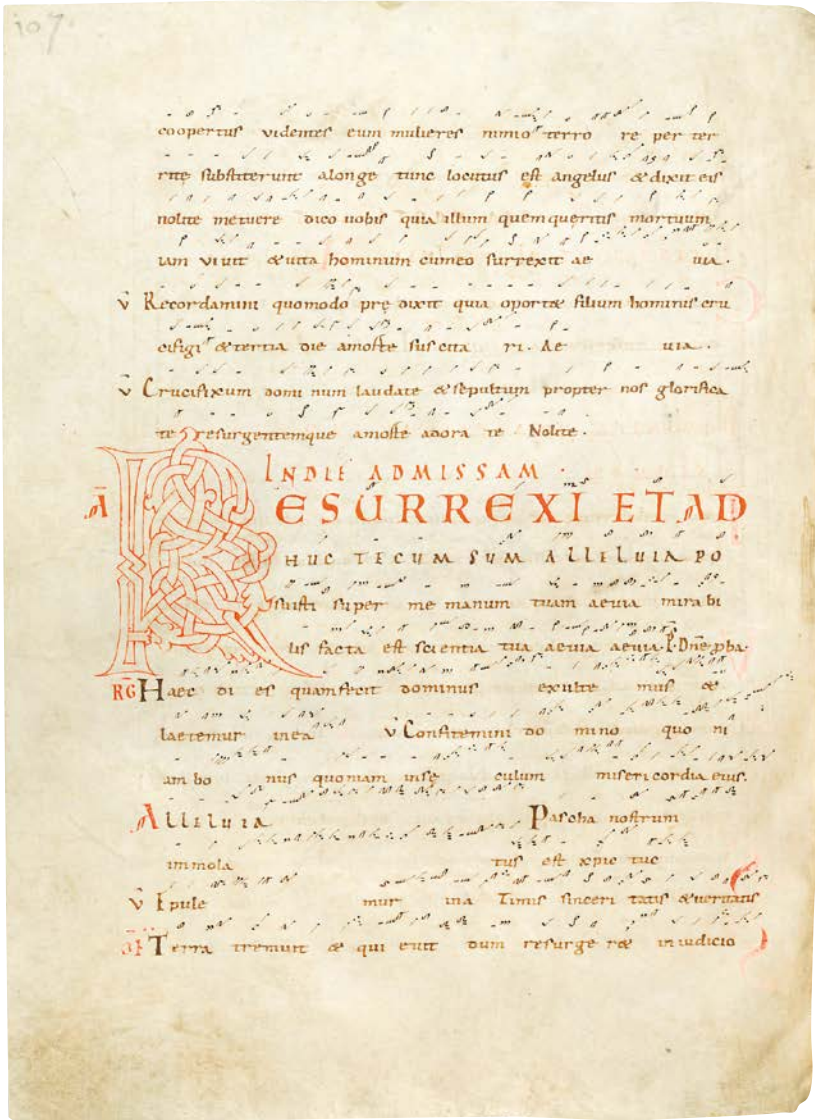 107
coopertus videntes eum mulieres nimio terro re per ter
rite substiterunt alonge tunc locutus est angelus & dixit eis
nolite metuere dico uobis quia illum quem queritis mortuum
iam viuit & uita hominum cum eo surrexit ae uia.
v̄ Recordamini quomodo prędixit quia oport& filium hominis cru
cifigi & tertia die amorte suscita ri. Ae uia.
v̄ Crucifixum domi num laudate & sepultum propter nos glorifica
te resurgentemque amorte adora te Nolite.
IN DIE AD MISSAM
Ā RESURREXI ET AD
HUC TECUM SUM ALLELUIA PO
suisti super me manum tuam aeuia mirabi
lis facta est scientia tua aeuia aeuia. P. Dn̄e pba.
RG Haec di es quam fecit dominus exulte mus &
laetemur in ea v̄ Confitemini do mino quo ni
am bo nus quoniam insę culum misericordia eius.
Alleluia Pascha nostrum
immola tus est xpic tuc
v̄ Epule mur in a Zimis sinceri tatis & ueritatis
Terra tremuit & qui euit dum resurge r& in iudicio